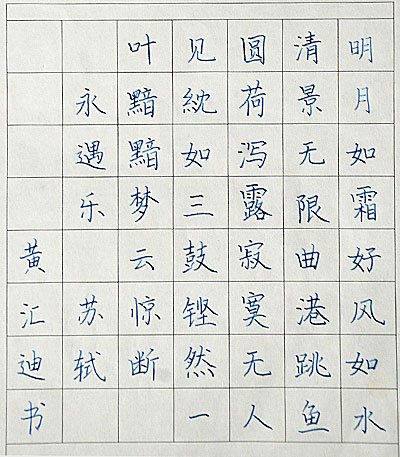 明月如霜好风如水
清景无限曲港跳鱼
圆荷泻露寂寞无人
见紞如三鼓铿然一
叶黯黯梦云惊断
永遇乐 苏轼
黄汇迪书